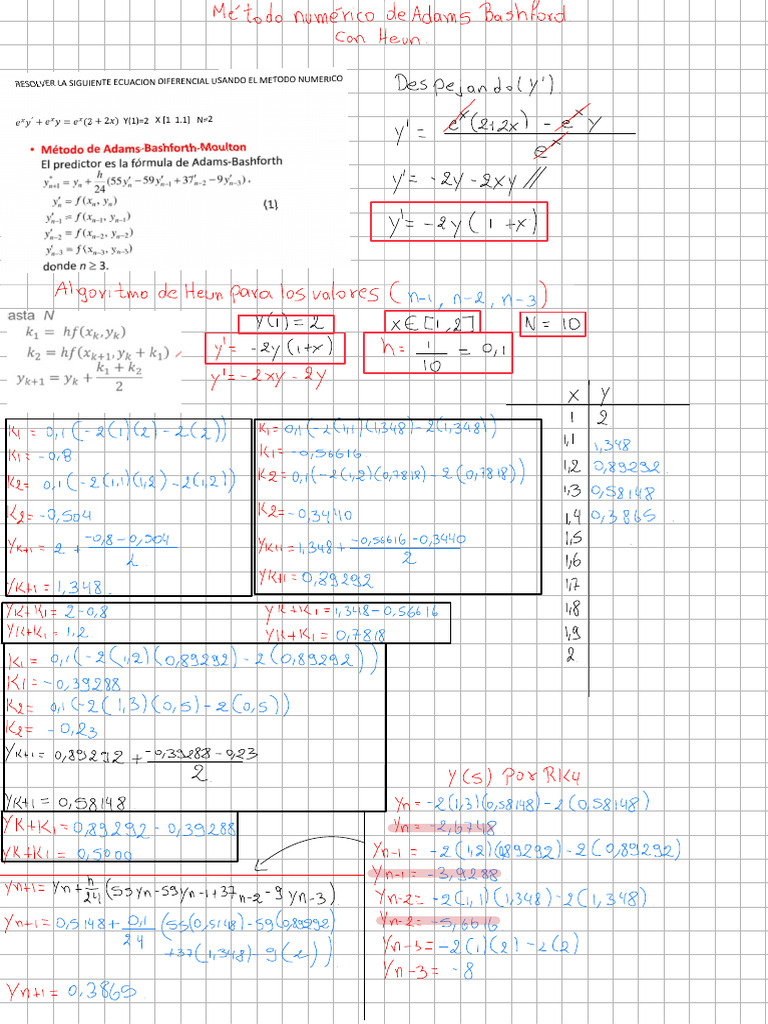 Método numérico de Adams Bashford
con Heun.
RESOLVER LA SIGUIENTE ECUACION DIFERENCIAL USANDO EL METODO NUMERICO
e^x y' + e^x y = e^x(2 + 2x) Y(1)=2 X [1 1.1] N=2
• Método de Adams-Bashforth-Moulton
El predictor es la fórmula de Adams-Bashforth
y*_{n+1} = y_n + h/24 (55y'_n − 59y'_{n−1} + 37'_{n−2} − 9y'_{n−3}),
y'_n = f(x_n, y_n)
y'_{n−1} = f(x_{n−1}, y_{n−1})
{1}
y'_{n−2} = f(x_{n−2}, y_{n−2})
y'_{n−3} = f(x_{n−3}, y_{n−3})
donde n ≥ 3.
Despejando(y')
y' = e^x(2+2x) - e^x y / e^x
y' = -2y-2xy //
y' = -2y(1+x)
Algoritmo de Heun para los valores (n-1, n-2, n-3)
asta N
k₁ = hf(x_k, y_k)
k₂ = hf(x_{k+1}, y_k + k₁)
y_{k+1} = y_k + (k₁ + k₂)/2
y(1) = 2
y' = -2y(1+x)
y' = -2xy - 2y
x∈[1,2]
h = 1/10 = 0,1
N = 10
x y
1 2
1,1 1,348
1,2 0,89292
1,3 0,58148
1,4 0,3865
1,5
1,6
1,7
1,8
1,9
2
K1 = 0,1(-2(1)(2) - 2(2))
K1 = -0,8
K2 = 0,1(-2(1,1)(1,2) - 2(1,2))
K2 = -0,504
YK+1 = 2 + (-0,8 - 0,504)/2
YK+1 = 1,348
K1 = 0,1(-2(1,1)(1,348) - 2(1,348))
K1 = -0,56616
K2 = 0,1(-2(1,2)(0,7818) - 2(0,7818))
K2 = -0,3440
YK+1 = 1,348 + (-0,56616 - 0,3440)/2
YK+1 = 0,89292
YK+K1 = 2 - 0,8
YK+K1 = 1,2
YK+K1 = 1,348 - 0,56616
YK+K1 = 0,7818
K1 = 0,1(-2(1,2)(0,89292) - 2(0,89292))
K1 = -0,39288
K2 = 0,1(-2(1,3)(0,5) - 2(0,5))
K2 = -0,23
YK+1 = 0,89292 + (-0,39288 - 0,23)/2
YK+1 = 0,58148
YK+K1 = 0,89292 - 0,39288
YK+K1 = 0,5000
Yn+1 = Yn + h/24 (55yn - 59yn-1 + 37n-2 - 9yn-3)
Yn+1 = 0,5148 + 0,1/24 (55(0,5148) - 59(0,89292)
+37(1,348) - 9(2))
Yn+1 = 0,3865
Y(5) por RK4
Yn = -2(1,3)(0,58148) - 2(0,58148)
Yn = -2,6748
Yn-1 = -2(1,2)(0,89292) - 2(0,89292)
Yn-1 = -3,9288
Yn-2 = -2(1,1)(1,348) - 2(1,348)
Yn-2 = -5,6616
Yn-3 = -2(1)(2) - 2(2)
Yn-3 = -8